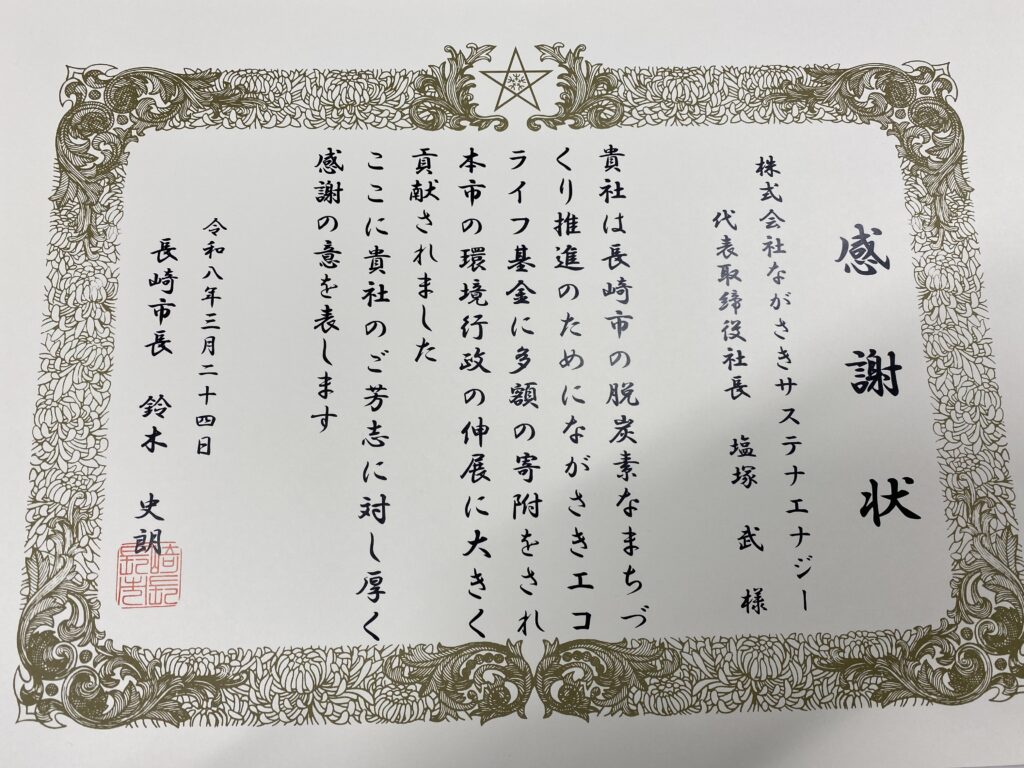 感謝状
株式会社ながさきサステナエナジー
代表取締役社長 塩塚 武 様
貴社は長崎市の脱炭素なまちづ
くり推進のためにながさきエコ
ライフ基金に多額の寄附をされ
本市の環境行政の伸展に大きく
貢献されました
ここに貴社のご芳志に対し厚く
感謝の意を表します
令和八年三月二十四日
長崎市長 鈴木 史朗